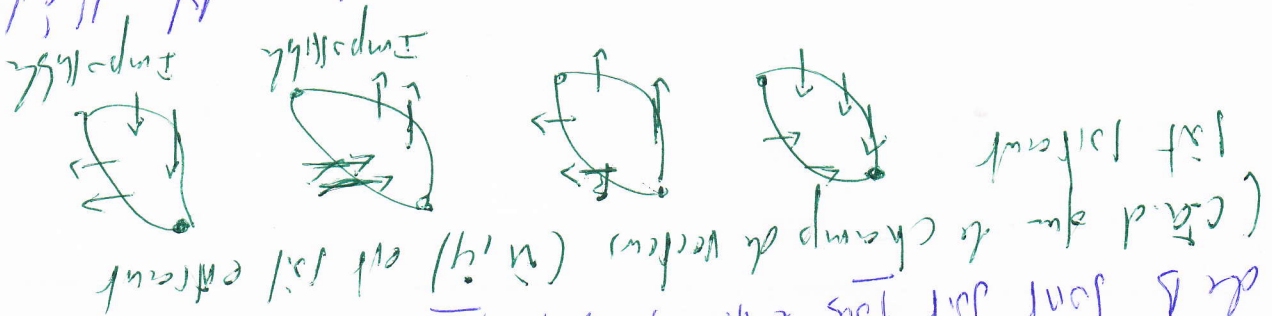 de B sont soit tous
(c.à.d que le champ de vecteurs (u̇, ẏ) est soit entrant
soit sortant
Impossible Impossible